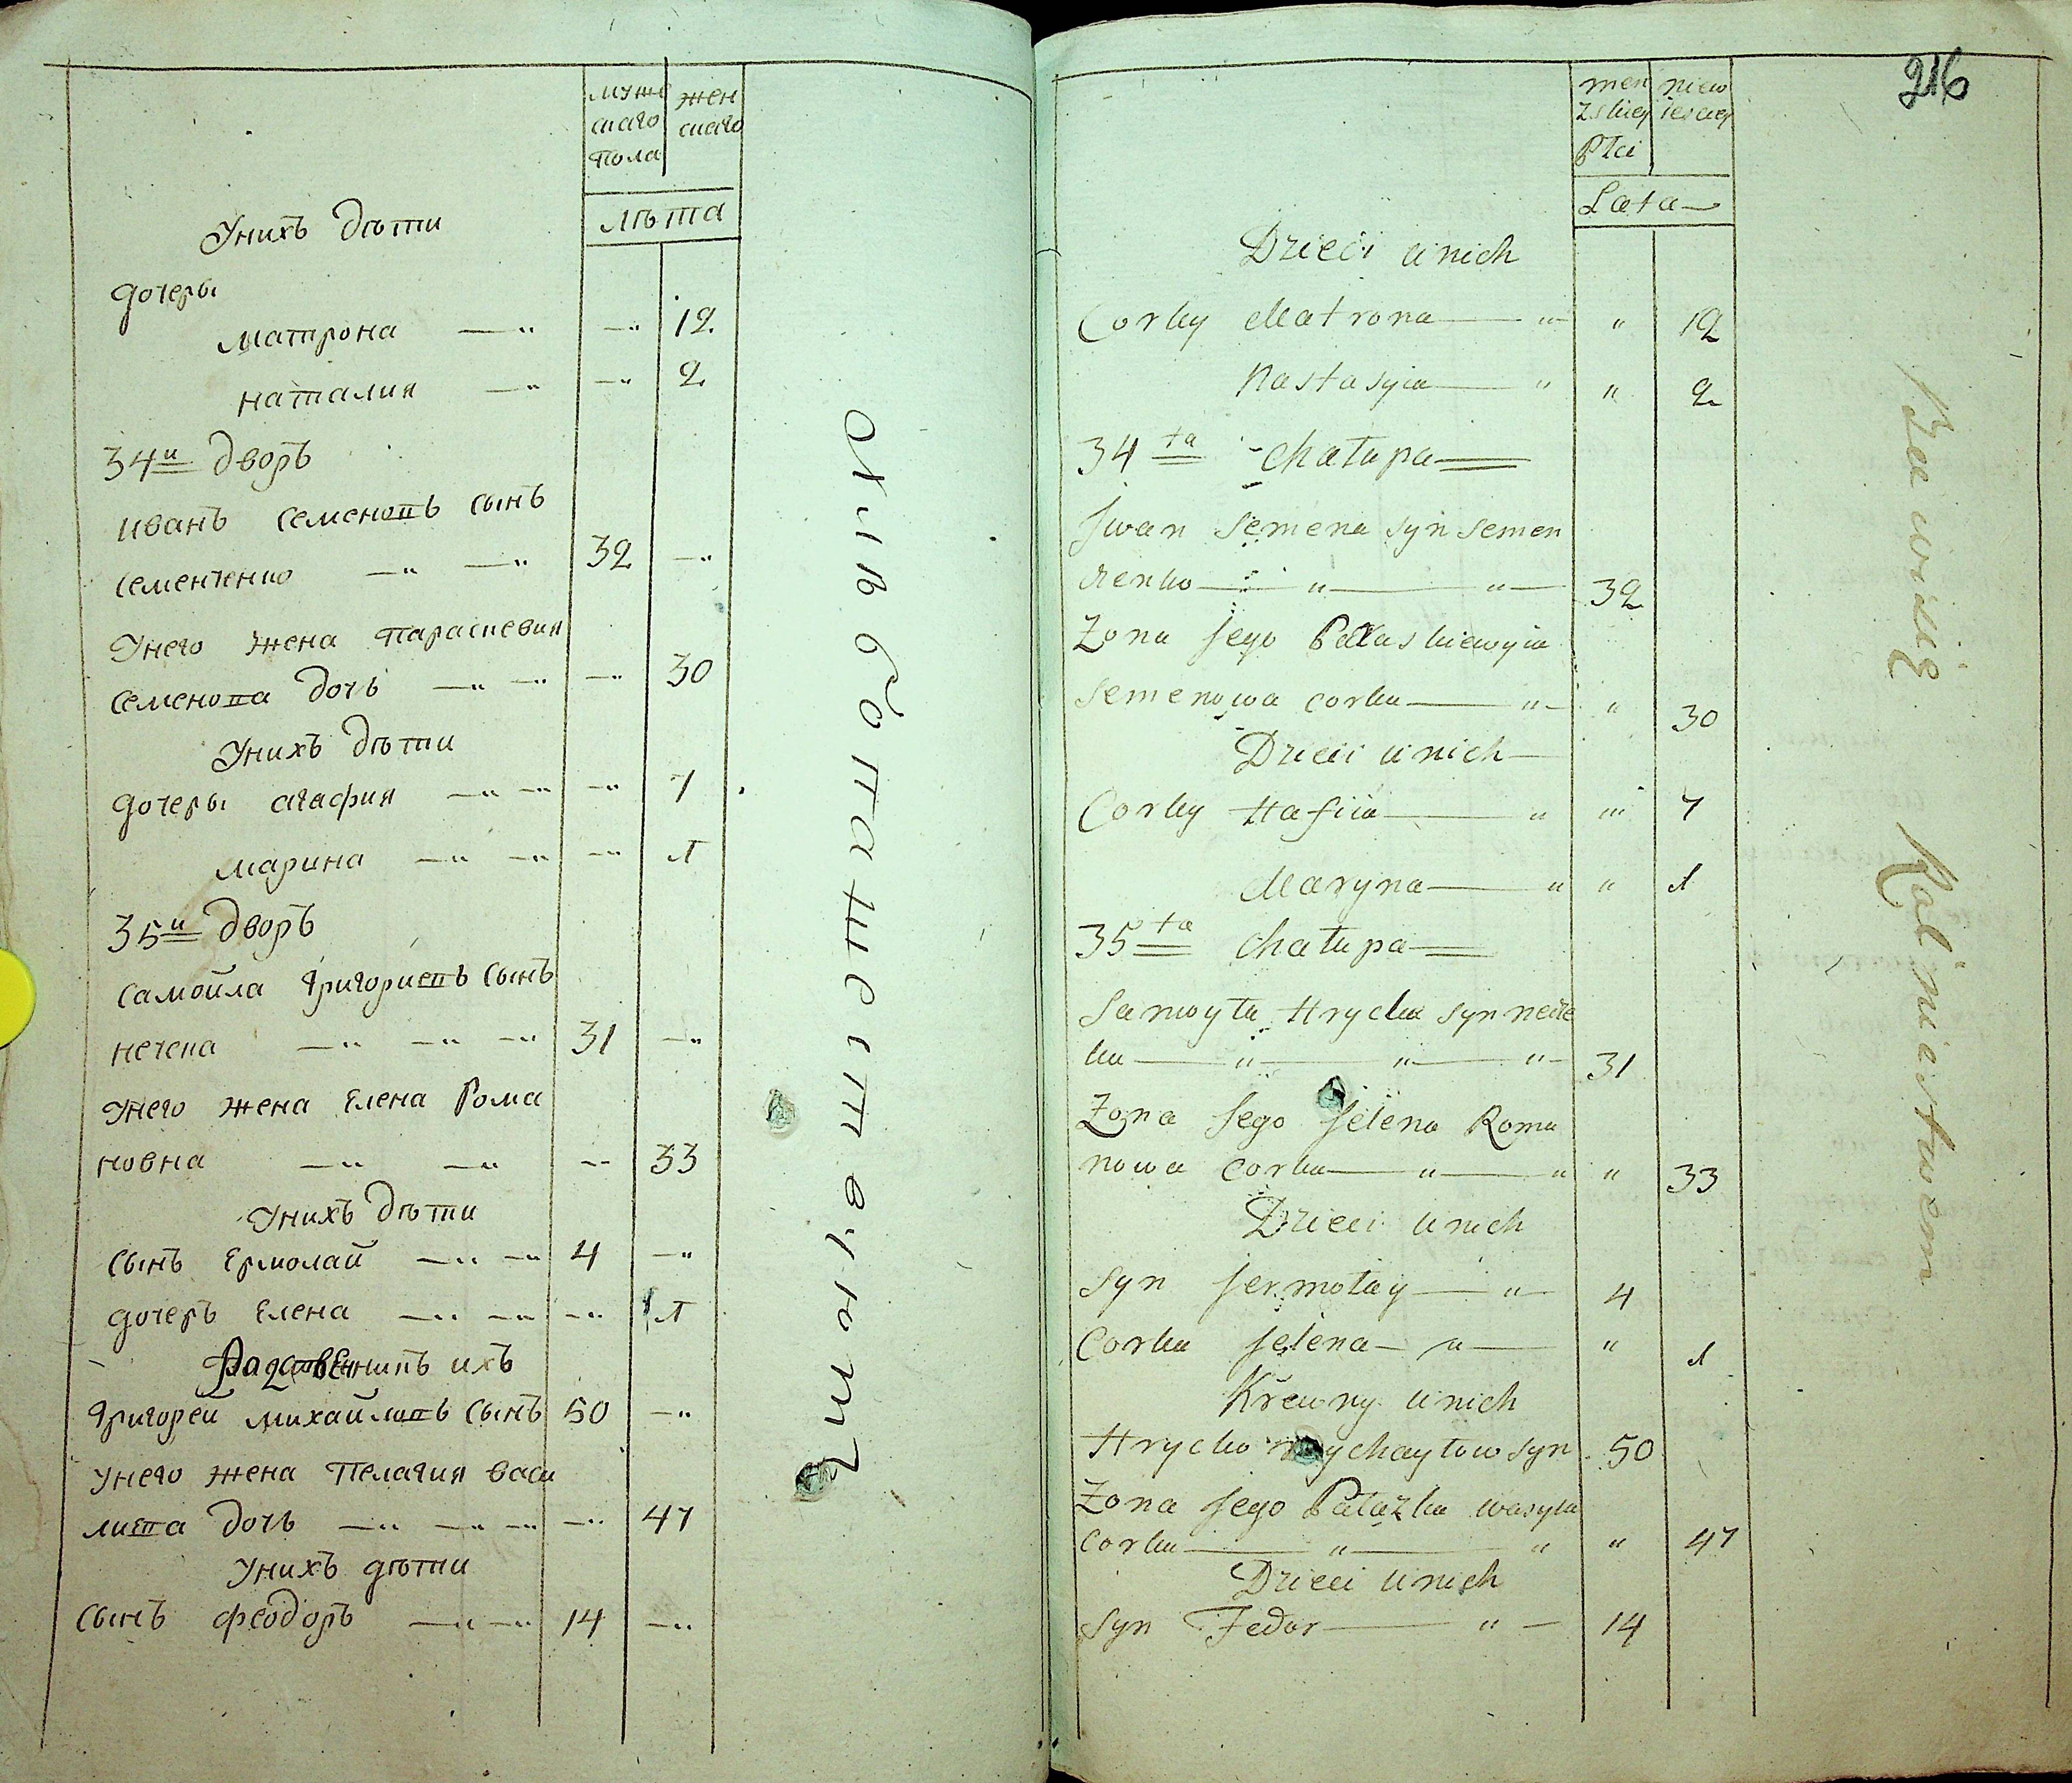 мужскаго пола
женскаго
лѣта
Унихъ дѣти
дочеры
матрона —„ —„ 12
наталия —„ —„ 2
34й дворъ
иванъ семеновъ сынъ
семенченко —„ —„ 32 —„
Унего жена параскевия
семенова дочь —„ —„ —„ 30
Унихъ дѣти
дочеры агафия —„ —„ —„ 7
марина —„ —„ —„ 1
35й дворъ
самойла григориевъ сынъ
нечепа —„ —„ —„ 31 —„
Унего жена елена Рома
новна —„ —„ —„ 33
Унихъ дѣти
сынъ ермолай —„ —„ 4 —„
дочеръ елена —„ —„ —„ 1
ихъ
григорей михайловъ сынъ 50 —„
унего жена пелагия васи
лиева дочь —„ —„ —„ —„ 47
Унихъ дѣти
сынъ феодоръ —„ —„ 14 —„
216
menzskiey niewiesciey
Płci
Lata
Dzieci u nich
Corky Matrona — „ „ 12
Nastasyia — „ „ 2
34ta chałupa
Iwan Semena syn Semen
czenko — „ — „ — 32
Zona Jego Paraskiewyia
Semenowa corka — „ — „ 30
Dzieci u nich
Corky Hafiia — „ „ 7
Maryna — „ „ 1
35ta chałupa
Samoyła Hrycka syn necze
— „ — „ — „ — 31
Zona Jego Jelena Roma
nowa corka — „ — „ „ 33
Dzieci u nich
Syn Jermołay — „ — 4
Corka Jelena — „ — „ 1
Krewny u nich
Hrycko mychayłow syn 50
Zona Jego Pałazka wasyla
corka — „ — „ „ 47
Dzieci u nich
Syn Fedor — „ — 14